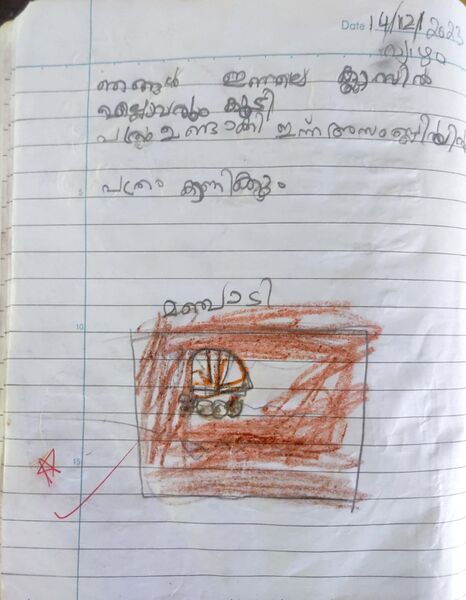 Date 14/12/2023
വ്യാഴം
ഞങ്ങൾ ഇന്നലെ ക്ലാസിൽ
എല്ലാവരും കൂടി
പത്രം ഉണ്ടാക്കി ഇന്ന് അസംബ്ലിയിൽ
5
പത്രം കാണിക്കും
മഞ്ചാടി
10
15